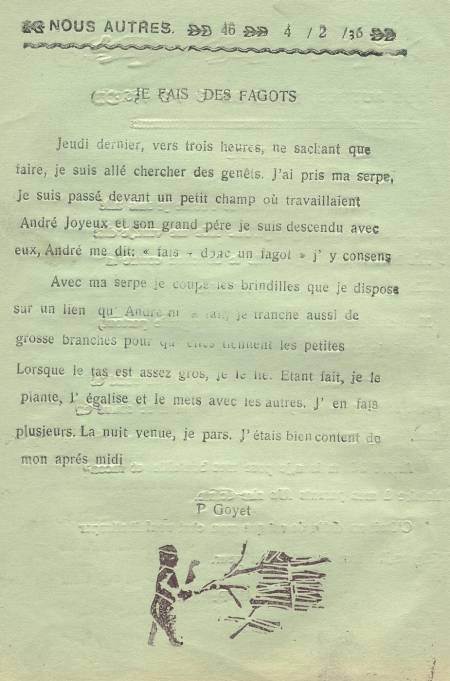 NOUS AUTRES. 46 4 / 2 /36
JE FAIS DES FAGOTS
Jeudi dernier, vers trois heures, ne sachant que
faire, je suis allé chercher des genêts. J'ai pris ma serpe,
Je suis passé devant un petit champ où travaillaient
André Joyeux et son grand pére je suis descendu avec
eux, André me dit: « fais - donc un fagot » j' y consens
Avec ma serpe je coupe les brindilles que je dispose
sur un lien qu' André m' a fait, je tranche aussi de
grosse branches pour qu' elles tiennent les petites
Lorsque le tas est assez gros, je le lie. Etant fait, je le
plante, l' égalise et le mets avec les autres. J' en fais
plusieurs. La nuit venue, je pars. J' étais bien content de
mon aprés midi
P Goyet